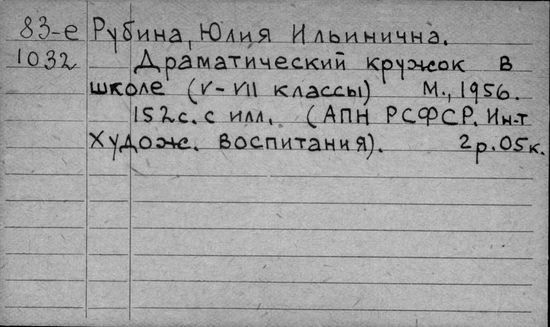 83-е Рубина, Юлия Ильинична.
1032 Драматический кружок в
школе (V-VII классы) М., 1956.
152с. с илл. (АПН РСФСР. Ин-т
Худож. воспитания). 2р.05к.